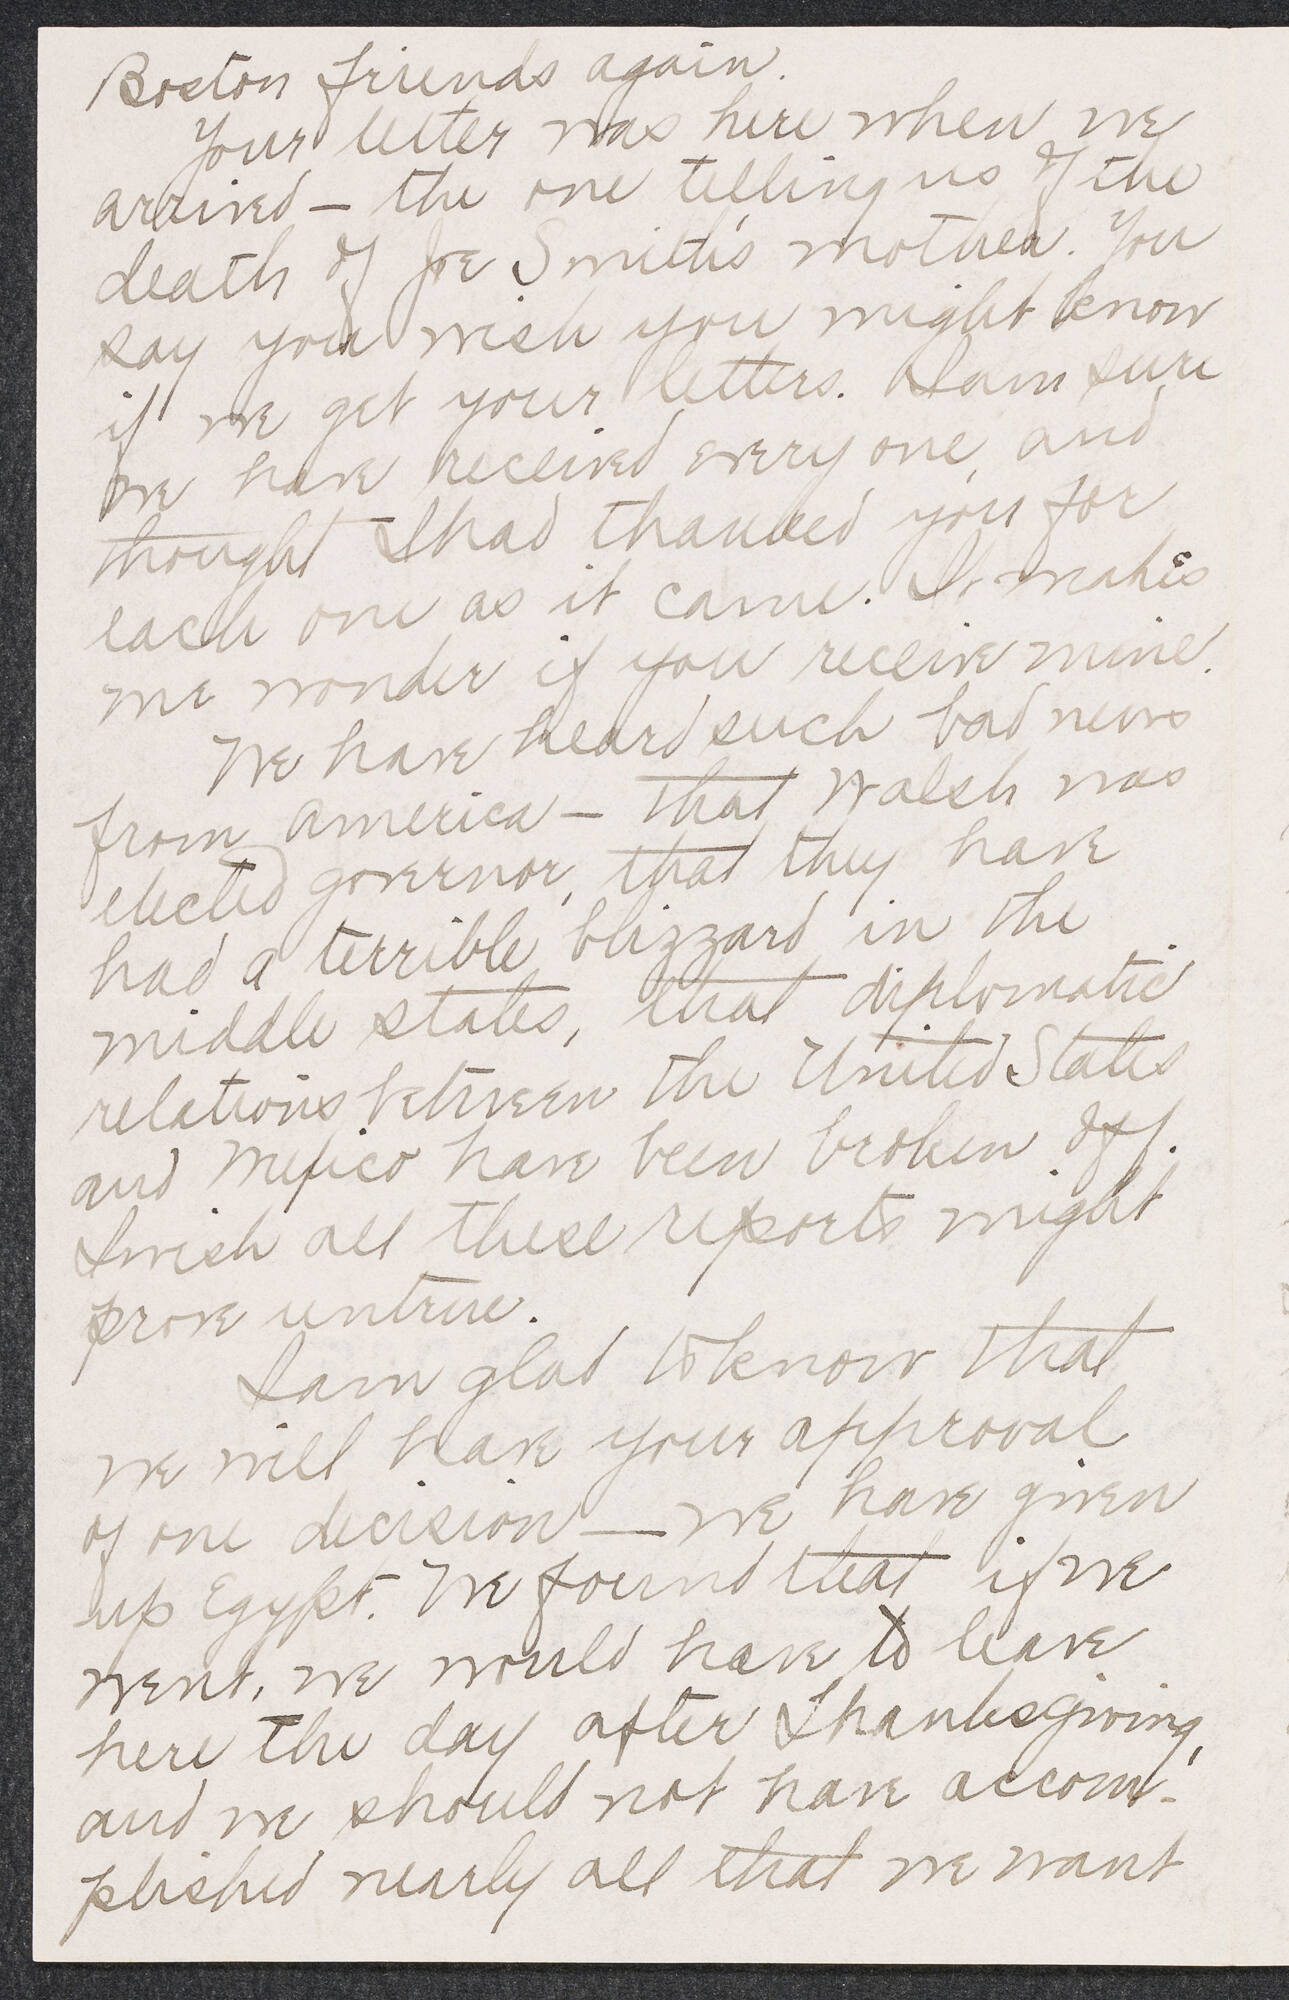 Boston friends again.
Your letter was here when we
arrived — the one telling us of the
death of Joe Smith's mother. You
say you wish you might know
if we get your letters. I am sure
we have received every one, and
thought I had thanked you for
each one as it came. It makes
me wonder if you receive mine.
We have heard such bad news
from America — that Walsh was
elected governor, that they have
had a terrible blizzard in the
middle states, that diplomatic
relations between the United States
and Mexico have been broken off.
I wish all these reports might
prove untrue.
I am glad to know that
we will have your approval
of one decision — we have given
up Egypt. We found that if we
went, we would have to leave
here the day after Thanksgiving,
and we should not have accom-
plished nearly all that we want